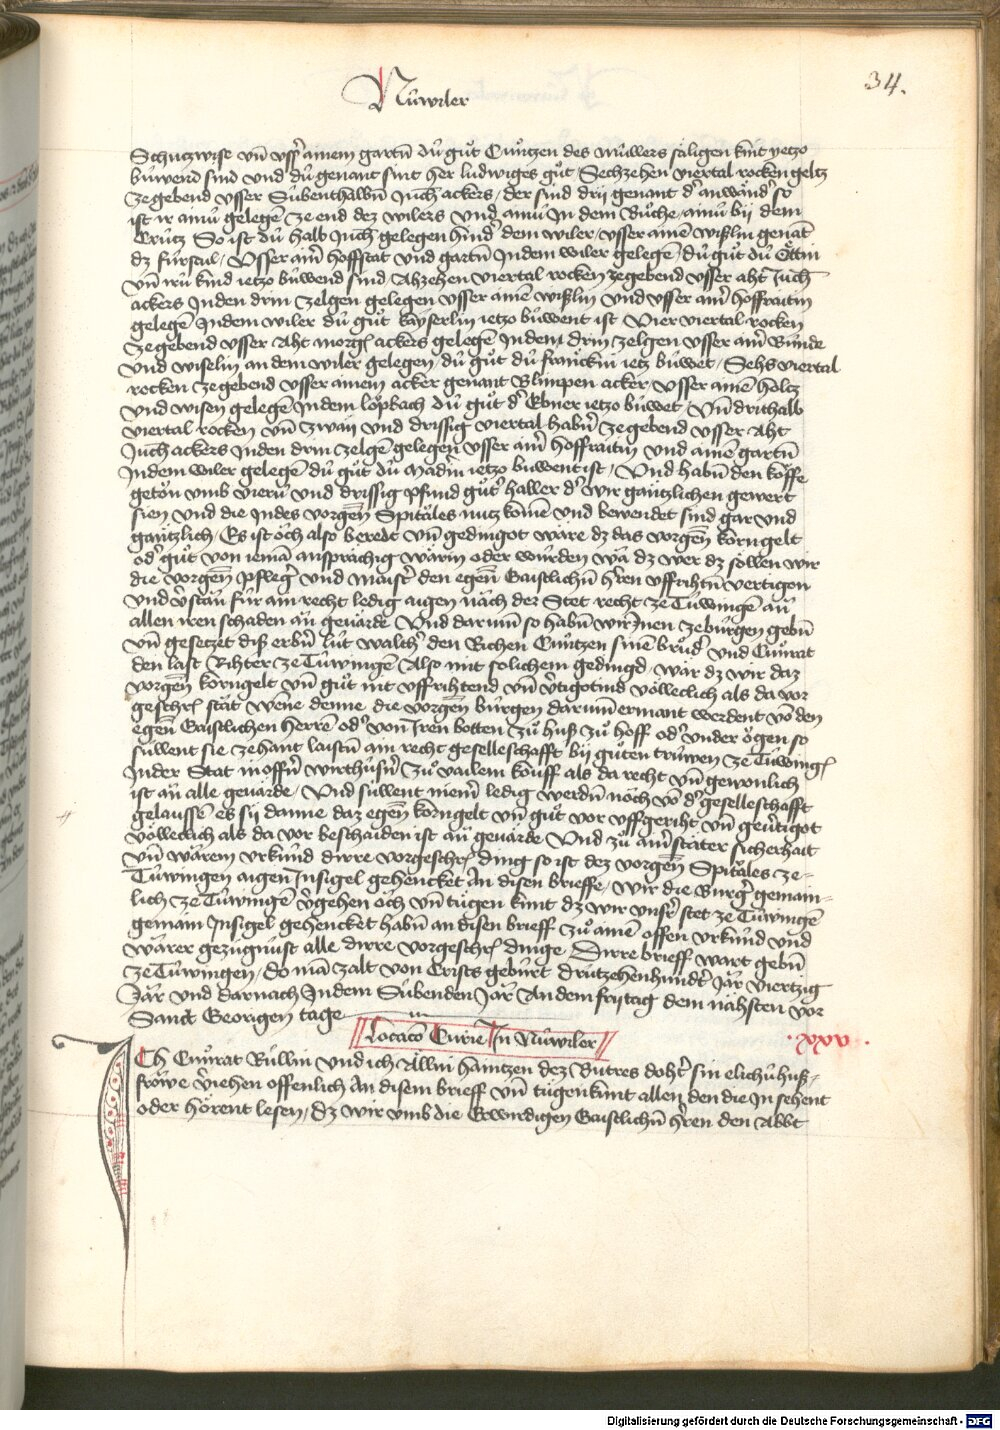 Nüwiler
34.
Schutzwise vñ vsser ainem gartñ dü gůt Cůntzen des Müllers säligen kint yetzo
büwend sind vnd dü genant sint her ludwiges gůt / Sechzehen viertal rocken geltz
ze gebend vsser Sübenthalbñ Juch ackers / der sind drij genant der anwänder so
ist ir ainü gelegē ze end dez wilers vnd ainü Jn dem Büche / ainü bij dem
Crütz So ist dü halb Juch gelegen hinder dem wiler / vsser ainē wißlin genāt
dz fürstal / Vsser ainer hoffstat vnd gartñ Jndem wiler gelegē / dü gůt dü Öttin
vñ irü kind ietzo büwend sind / Ahzehen viertal rocken ze gebend vsser aht Juch
ackers Jnden drin zelgen gelegen vsser ainē wißlin vnd vsser ainer hoffraitin
gelegē Jndem wiler dü gůt kayserlin ietzo büwent ist / Vier viertal rocken
ze gebend vsser Aht morgen ackers gelegē Jnden drin zelgen vsser ainer Bünde
vnd wiselin an dem wiler gelegen / dü gůt dü franckin ietz büwet / Sehs viertal
rocken ze gebend vsser ainem acker genant Blimpen acker / vsser ainē holtz
vnd wisen gelegē Jndem löpbach dü gůt der Ebner ietzo büwet / Vñ drithalb
viertal rocken vñ zwaij vnd drissig viertal haber ze gebend vsser Aht
Juch ackers Jnden drin zelgē gelegen vsser ainer hoffraitin vnd ainē gartñ
Jndem wiler gelegē dü gůt dü Madin ietzo buwent ist / Vnd habñ den köffe
getön vmb vierü vnd drissig pfund gůter haller der wir gäntzlichen gewert
sien vnd die Jndes vorgen Spitäles nutz komē vnd bewendet sind gar vnd
gäntzlich / Es ist öch also beredt vñ gedingot wäre dz das vorgen korn gelt
oder gůt von iemā ansprächig wärin oder würden wā dz wer dz söllen wir
die vorgen pfleger vnd Maister den egen Gaistlichñ herren vffrihtñ vertigon
vnd verstan für ain recht ledig aigen näch der Stet recht ze Tüwingē an
allen iren schaden an geuärde Vnd darumb so habñ wir Jnen ze bürgen gebñ
vñ gesetzet diß erbern lüt walther den Richen Cüntzen sinē brůder vnd Cůnrat
den last Rihter ze Tüwingē Also mit solichem gedingd / wär dz wir daz
vorgen korngelt vñ gůt nit vffrihtend vñ vertigotind völleclich als da vor
geschriben stat wene denne die vorgen bürgen darumb ermant werdent vō den
egen Gaistlichen herrē oder von Jren botten zů huß zů hoff oder vnder ögen so
süllent sie zehant laistñ ain recht geselleschafft bij gůten trüwen ze Tüwingen
Jnder Stat in offner wirthüser zů vailem köuff als da recht vñ gewonlich
ist än alle geuärde / Vnd süllent niemer ledig werdñ noch vō der geselleschafft
gelaussē es sij danne daz egen korngelt vñ gůt vor vffgeriht vñ geuertigot
völleclich als da vor beschaiden ist än geuärde Vnd zů ainer stäter sicherhait
vñ wärem vrkünd dirre vorgeschribner ding so ist dez vorgen Spitäles ze-
Tüwingen aigen Jnsigel gehencket An disen brieffe / wir die Burger gemain-
lich ze Tüwingē veriehen öch vñ tügen kunt dz wir vnser stet ze Tüwingē
gemain Jnsigel gehencket habñ an disen brieff zů ainē offen vrkünd vnd
wärer gezügnüst alle dirre vorgeschribner dinge / Dirre brieff wart gebñ
ze Tüwingen / do mā zalt von Crists gebürt drützehenhundert Jar viertzig
Jar vnd darnach Jndem Sübenden Jar An dem frytag dem nähsten vor
Sanct Georigen tage
Locacō Curie Jn Nüwiler
·xxxv·
Ich Cůnrat Rüllin vnd ich Allin haintzen dez Butres dohter sin elichü huß-
fröwe veriehen offenlich An disem brieff vñ tügen kunt allen den die Jn sehent
oder hörent lesen / dz wir vmb die Erwirdigen Gaistlichñ herren den Abbt
Digitalisierung gefördert durch die Deutsche Forschungsgemeinschaft - DFG